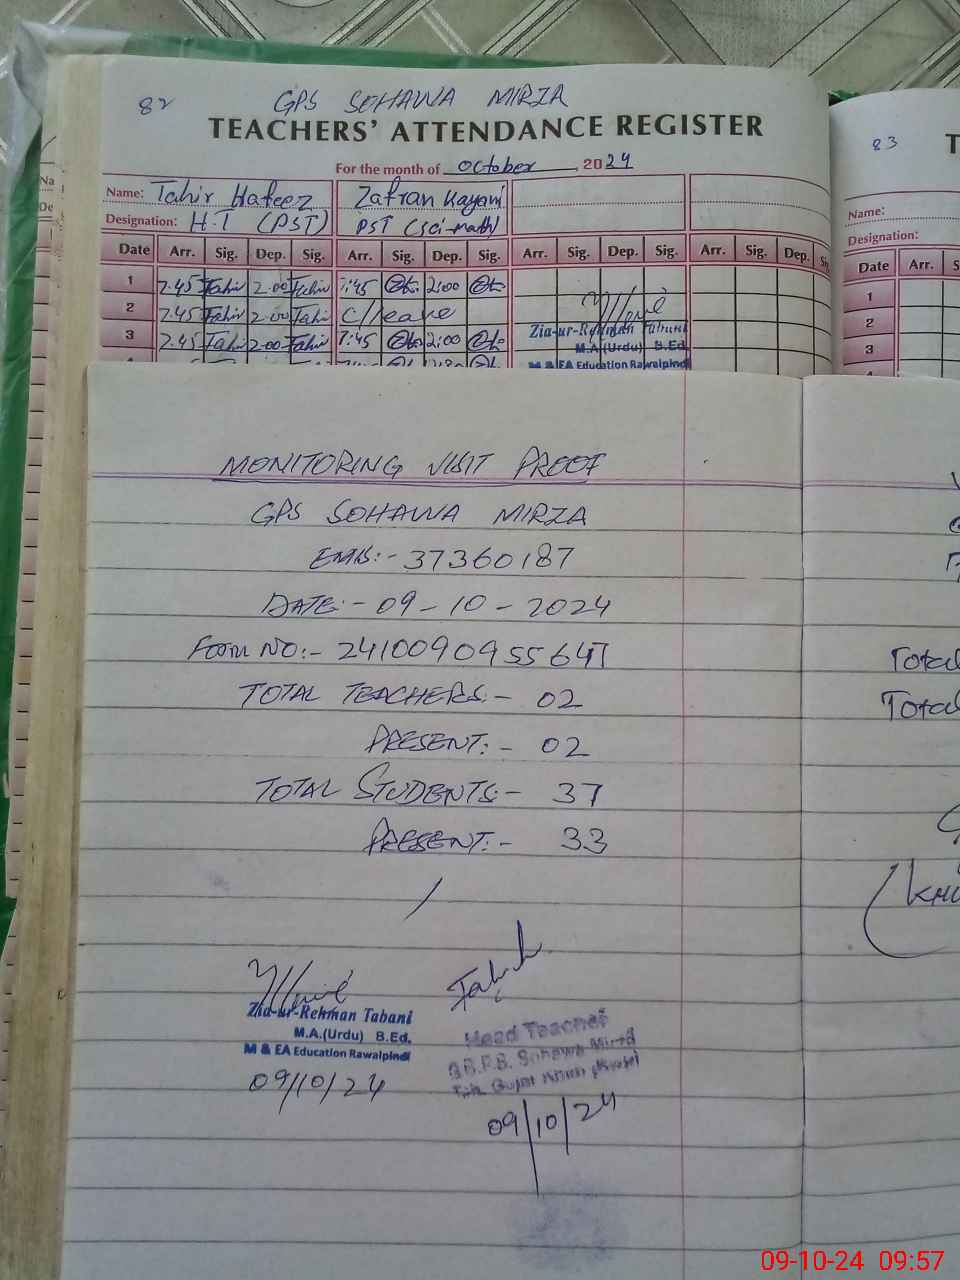 82 GPS SOHAWA MIRZA
TEACHERS' ATTENDANCE REGISTER
For the month of October, 2024
Name: Tahir Hafeez Zafran Kayani
Designation: H.T (PST) PST (Sci-math)
Date Arr. Sig. Dep. Sig. Arr. Sig. Dep. Sig. Arr. Sig. Dep. Sig. Arr. Sig. Dep.
1 7.45 Tahir 2.00 Tahir 7:45 2:00
2 7.45 Tahir 2.00 Tahir C/leave
3 7.45 Tahir 2.00 Tahir 7:45 2:00
Zia-ur-Rehman Tabani
M.A.(Urdu) B.Ed.
M & EA Education Rawalpindi
83
T
Name:
Designation:
Date Arr.
1
2
3
MONITORING VISIT PROOF
GPS SOHAWA MIRZA
EMIS:- 37360187
DATE:- 09-10-2024
FORM NO:-
TOTAL TEACHERS:- 02
PRESENT:- 02
TOTAL STUDENTS:- 37
PRESENT:- 33
Zia-ur-Rehman Tabani
M.A.(Urdu) B.Ed.
M & EA Education Rawalpindi
09/10/24
Tahir
Head Teacher
09/10/24
Total
Total
09-10-24 09:57